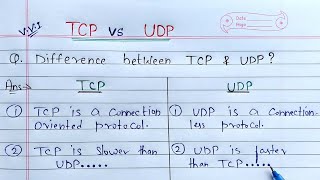 V.V.S
TCP vs UDP
Date
Page
Q. Difference between TCP & UDP?
Ans→ TCP UDP
① TCP is a Connection Oriented protocol.
① UDP is a Connection-less protocol.
② TCP is slower than UDP.....
② UDP is faster than TCP.....